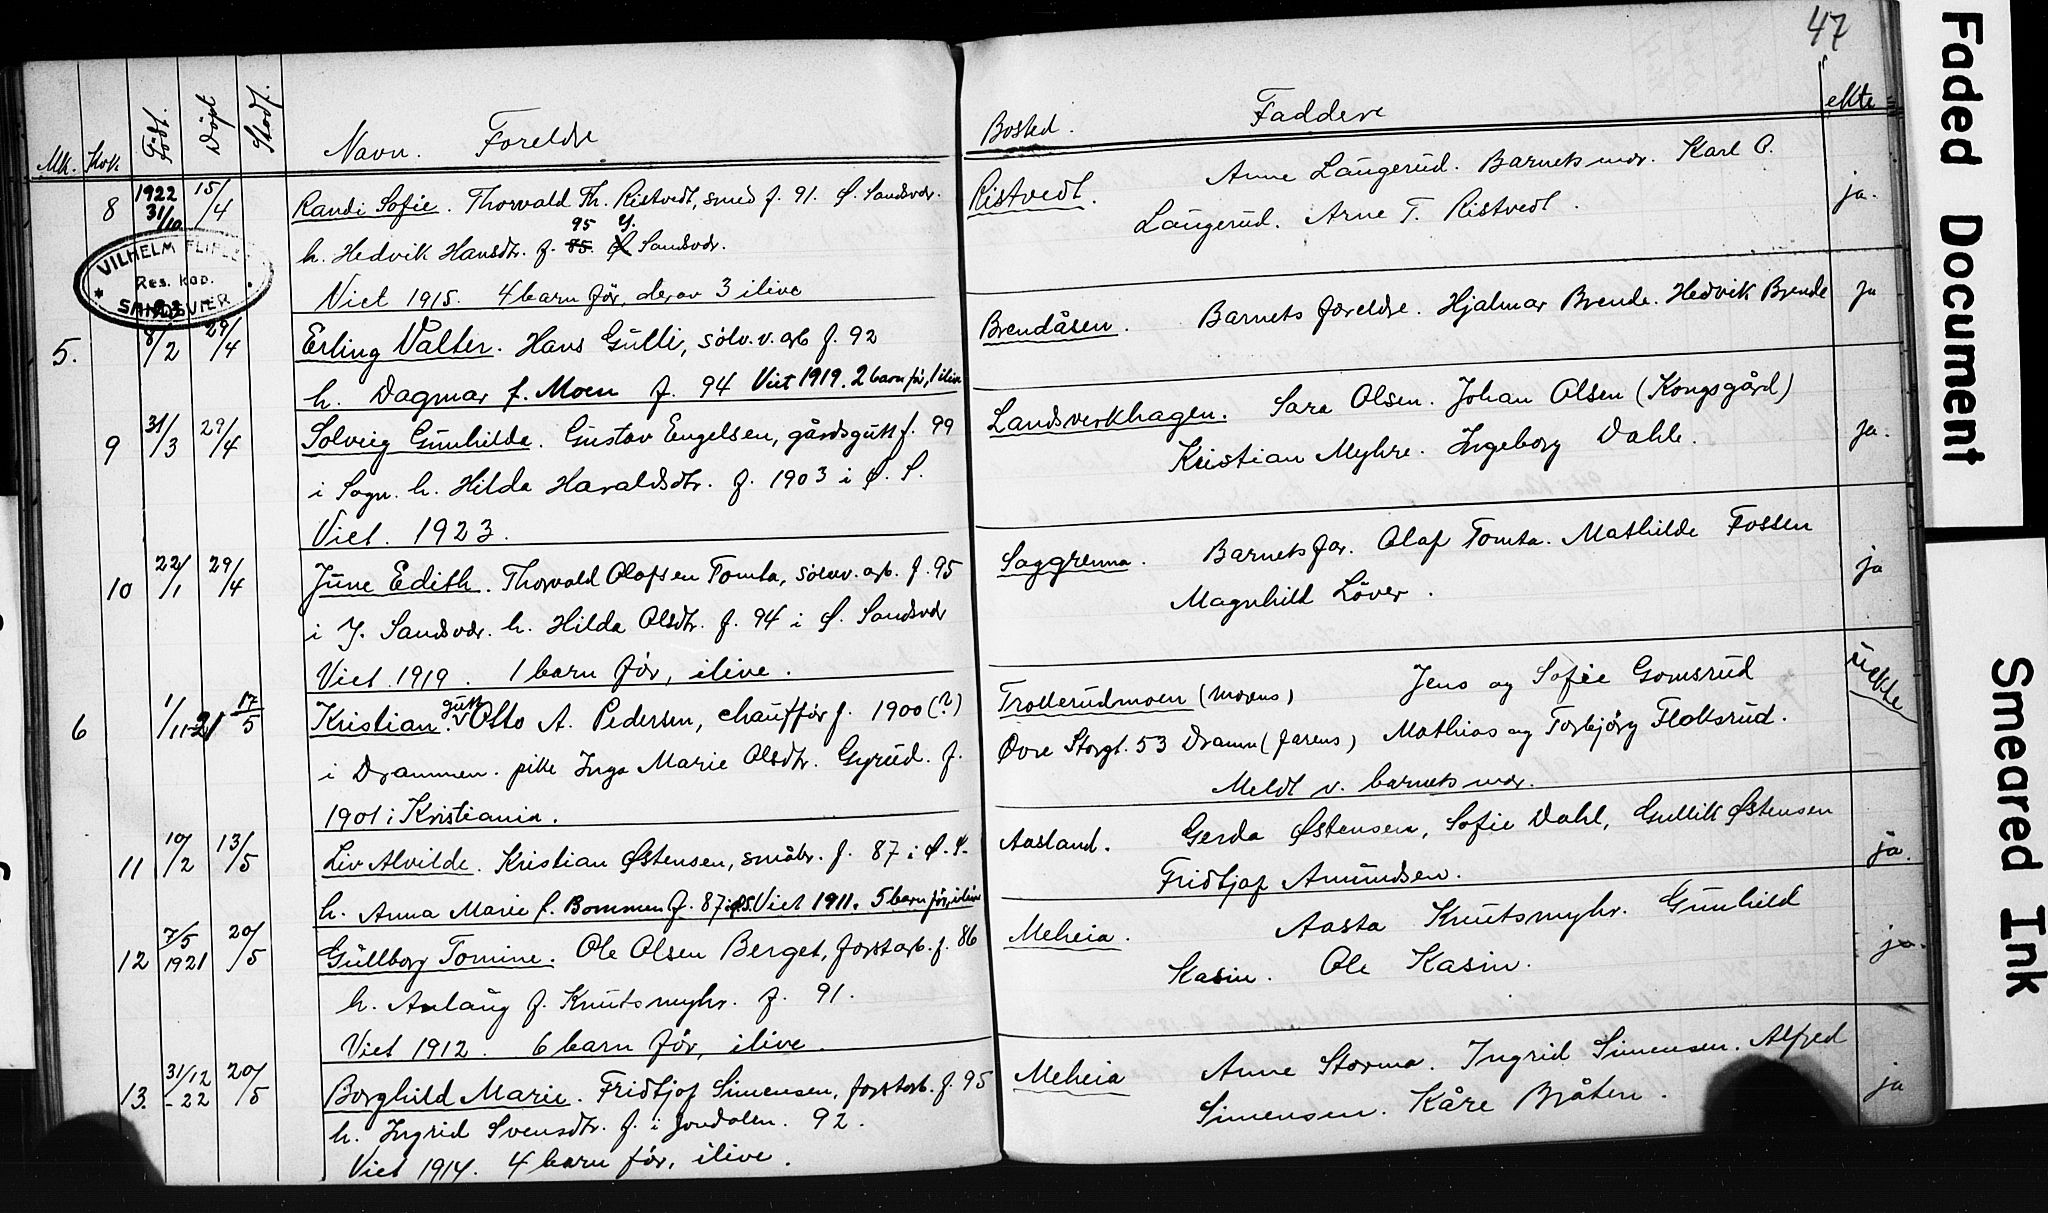 47
Mk. Kvk. Født. Døpt Stadf. Navn. Foreldre Bosted. Faddere ekte
8 1922 31/10 15/4 Randi Sofie. Thorvald Th. Ristvedt, smed f. 91. Ø. Sandsvær. Ristvedt. Anne Laugerud. Barnets mor. Karl O. ja.
95 Y.
h. Hedvik Hansdtr. f. 85. Ø Sandsvær. Laugerud. Arne T. Ristvedt.
Viet 1915. 4 barn før, derav 3 ilive
VILHELM
Res. kap.
SANDSVÆR
5. 8/2 29/4 Erling Valter. Hans Gulli, sølv.v. arb f. 92 Brendåsen. Barnets foreldre. Hjalmar Brende. Hedvik Brende ja
h. Dagmar f. Moen f. 94 Viet 1919. 2 barn før, 1 ilive
9 31/3 29/4 Solveig Gunhilda. Gustav Engelsen, gårdsgutt f. 99 Landsverkhagen. Sara Olsen. Johan Olsen (Kongsgård) ja.
i Sogn. h. Hilda Haraldsdtr. f. 1903 i Ø. S. Kristian Myhre. Ingeborg Dahle.
Viet. 1923.
10 22/1 29/4 June Edith. Thorvald Olafsen Tomta, sølvv. arb. f. 95 Saggrenna. Barnets far. Olaf Tomta. Mathilde Fossen ja
i Y. Sandsvær. h. Hilda Olsdtr. f. 94 i Ø. Sandsvær Magnhild Löver.
Viet 1919. 1 barn før, ilive.
6 1/11-21 17/5 Kristian. gutt Otto A. Pedersen, chauffør f. 1900 (?) Trollerudmoen (morens) Jens og Sofie Gomsrud uekte
i Drammen. pike Inga Marie Olsdtr. Gyrud. f. Øvre Storgt. 53 Dramn (farens) Mathias og Torbjørg Flåtsrud.
1901 i Kristiania. Meldt v. barnets mor.
11 10/2 13/5 Liv Alvilde. Kristian Østensen, småbr. f. 87 i Ø. S. Aasland. Gerda Østensen, Sofie Dahl, Gullik Østensen ja.
h. Anna Marie f. Bommen f. 87 i Ø.S. Viet 1911. 5 barn før, ilive Fridtjof Amundsen.
12 7/5 1921 20/5 Gullborg Tomine. Ole Olsen Berget, forstarb. f. 86 Meheia. Aasta Knutsmyhr. Gunhild ja.
h. Aslaug f. Knutsmyhr. f. 91. Kasin. Ole Kasin.
Viet 1912. 6 barn før, ilive.
13. 31/12 -22 20/5 Borghild Marie. Fridtjof Simensen, forstarb. f. 95 Meheia Anne Storma. Ingrid Simensen. Alfred ja
h. Ingrid Svensdtr. f. i Jondalen. 92. Simensen. Kåre Bråten.
Viet 1914. 4 barn før, ilive.
Faded Document
Smeared Ink